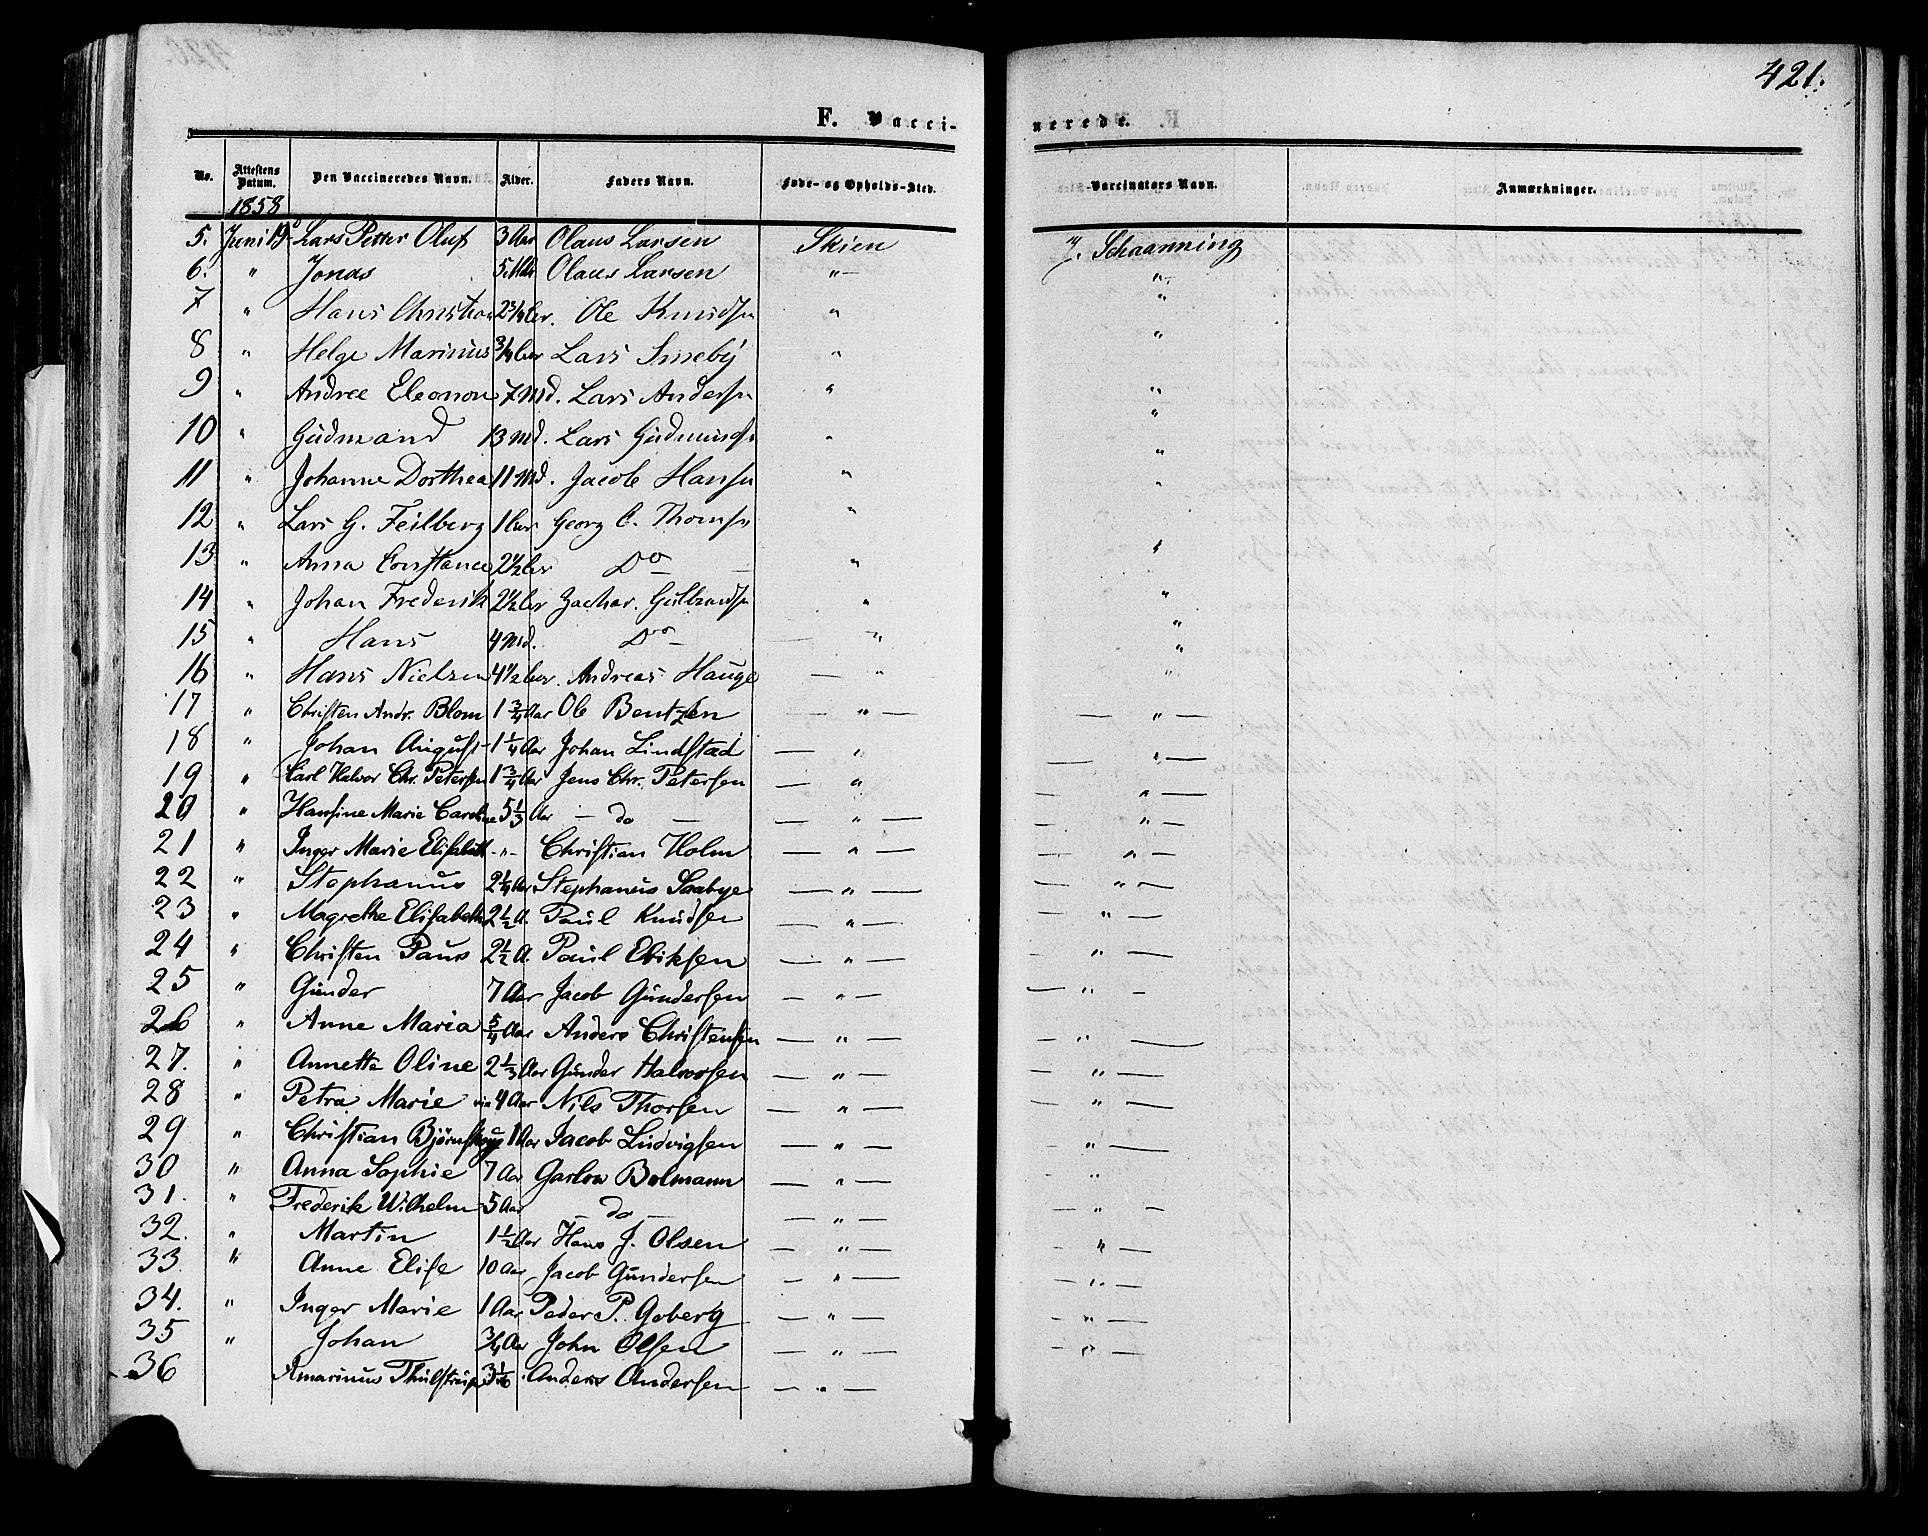 421.
F. Vacci-
nerede.
No. Attestens Datum. Den Vaccineredes Navn. Alder. Faders Navn. Føde- og Opholds-Sted. Vaccinators Navn. Anmærkninger.
1858
5. Juni 19d Lars Petter Oluf 3 Aar Olaus Larsen Skien J. Schaanning
6. " Jonas 5 Md Olaus Larsen " "
7 " Hans Christian 2¾ Ole Knudsen " "
8 " Helge Marinus ¾ Lars Smeby " "
9 " Andree Eleonore 7 Md. Lars Andersn " "
10 " Gudmand 13 Md. Lars Gudmunds " "
11 " Johanne Dorthea 11 Md. Jacob Hansn " "
12 " Lars G. Feilberg 1 Georg C. Thomsn " "
13 " Anna Constance 2½ Do " "
14 " Johan Frederik 2½ Zachar. Gulbrandsn " "
15 " Hans 4 Md. Do " "
16 " Hans Nielsen 4½ Andreas Hauge " "
17 " Christen Andr. Blom 1¾ Aar Ole Bentzen — " — — " —
18 " Johan August 1¼ Aar Johan Lindstad — " — " —
19 " Carl Halvor Chr. Petersen 1¾ Aar Jens Chr. Petersen — " — " —
20 " Hansine Marie Caroline 5⅓ Aar — do — — " — — " —
21 " Inger Marie Elisabeth - " - Christian Holm — " — — " —
22 " Stephanus 2¼ Aar Stephanus Saabye — " — — " —
23 " Magrethe Elisabeth 2½ A. Paul Knudsen — " — — " —
24 " Christen Paus 2½ A. Paul Eriksen — " — — " —
25 " Gunder 7 Aar Jacob Gundersen — " — — " —
26 " Anne Maria 5/4 Aar Anders Christensen — " — — " —
27. " Annette Oline 2⅓ Aar Gunder Halvorsen — " — — " —
28 " Petra Marie 4 Aar Nils Thorsen — " — — " —
29 " Christian 1 Aar Jacob Ludvigsen — " — — " —
30 " Anna Sophie 7 Aar Bolmann — " — — "
31. " Frederik Wilhelm 5 Aar — do — — " — — " —
32. " Martin 1½ Aar Hans J. Olsen — " — — " —
33. " Anne Elise 10 Aar Jacob Gundersen — " — — " —
34. " Inger Marie 1 Aar Peder P. Goberg — " — — " —
35 " Johan ¾ Aar John Olsen — " — — " —
36 Amarinus Thulstrup 3 Anders Andersen — " —